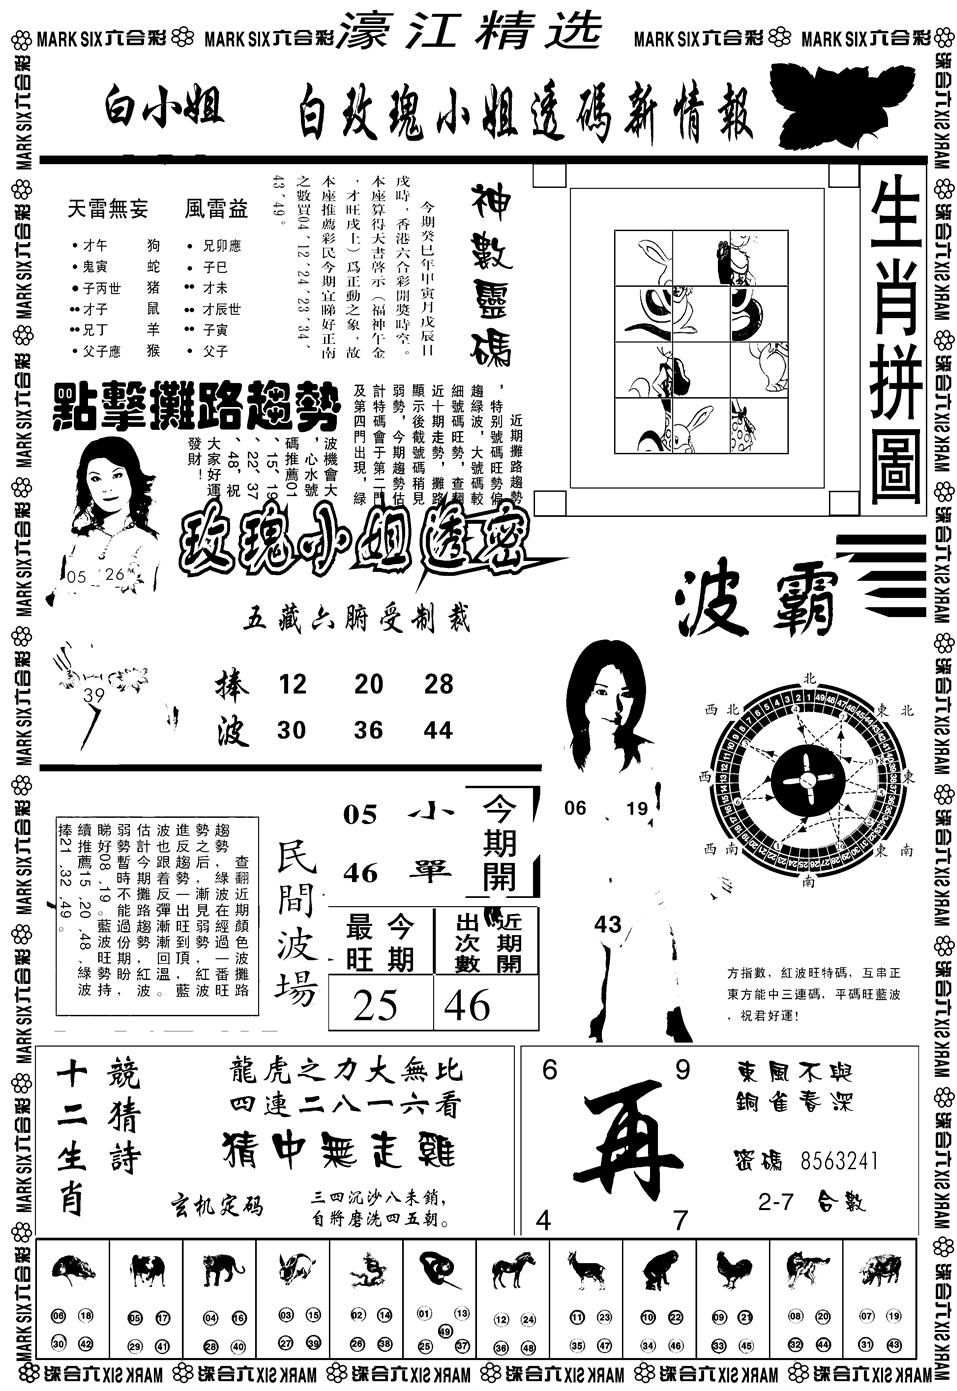 濠江精选
MARK SIX六合彩 MARK SIX六合彩 MARK SIX六合彩 MARK SIX六合彩
白小姐 白玫瑰小姐透碼新情報
生肖拼圖
神數靈碼
今期癸巳年甲寅月戊辰日
戌時，香港六合彩開獎時空。
本座算得天書啓示（福神午金
，才旺戌上）爲正動之象，故
本座推薦彩民今期宜睇好正南
之數買04、12、24、23、34、
43、49。
風雷益
• 兄卯應
• 子巳
•• 才未
•• 才辰世
•• 子寅
• 父子
天雷無妄
• 才午 狗
• 鬼寅 蛇
• 子丙世 猪
•• 才子 鼠
•• 兄丁 羊
• 父子應 猴
點擊攤路趨勢
近期攤路趨勢
，特别號碼旺勢偏
趨綠波，大號碼較
細號碼旺勢，查翻
近十期走勢，攤路
顯示後截號碼稍見
弱勢，今期趨勢估
計特碼會于第二門
及第四門出現，綠
波機會大
，心水號
碼推薦01
、15、19
、22、37
、48，祝
大家好運
發財！
05 26
39
玫瑰小姐透密
五藏六腑受制裁
捧 12 20 28
波 30 36 44
波霸
06 19
43
北
東北
東
東南
南
西南
西
西北
方指數，紅波旺特碼，互串正
東方能中三連碼，平碼旺藍波
，祝君好運！
民間波場
查翻近期顏色波攤路
趨勢，綠波在經過一番旺
勢之后，漸見弱勢，紅波
進反趨勢一出旺到頂，藍
波也跟着反彈漸漸回溫。
估計今期攤路趨勢，紅波
弱勢暫時不能過份期盼，
睇好08，19。藍波旺勢持
續推薦15，20，48，綠波
捧21，32，49。
05 小 今期開
46 單
今期最旺 近期開出次數
25 46
十二生肖
競猜詩
龍虎之力大無比
四連二八一六看
猜中無走雞
玄机定码
三四沉沙八未銷，
自將磨洗四五朝。
6 9
再
4 7
東風不與
銅雀春深
密碼 8563241
2-7 合數
06 18 30 42
05 17 29 41
04 16 28 40
03 15 27 39
02 14 26 38
01 13 49 25 37
12 24 36 48
11 23 35 47
10 22 34 46
09 21 33 45
08 20 32 44
07 19 31 43
MARK SIX六合彩 MARK SIX六合彩 MARK SIX六合彩 MARK SIX六合彩 MARK SIX六合彩 MARK SIX六合彩